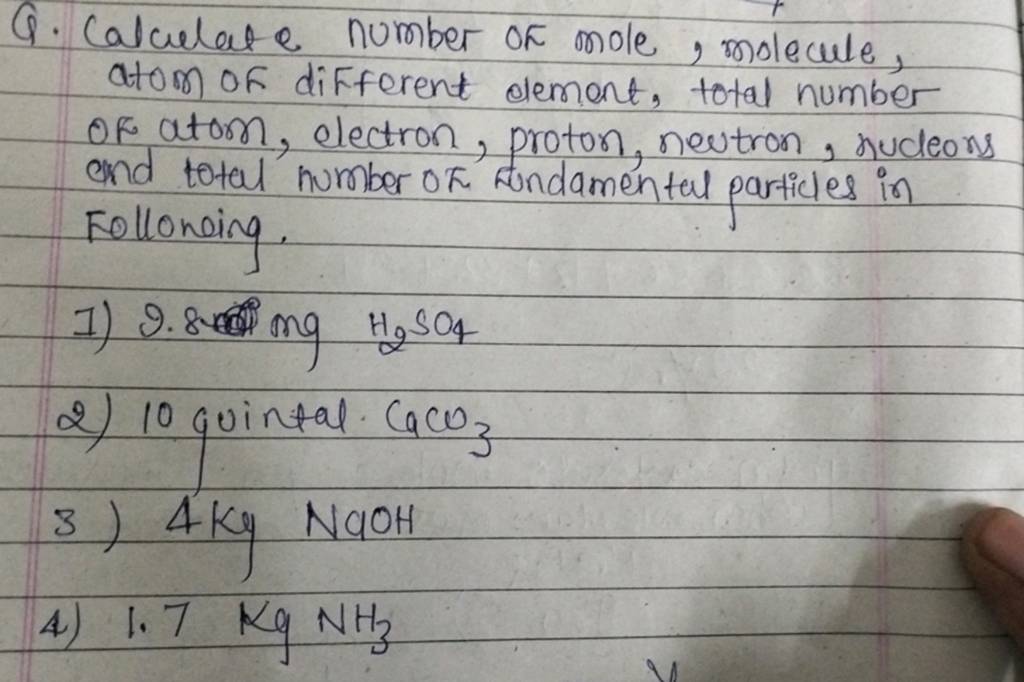 Q. Calculate number of mole, molecule,
atom of different element, total number
of atom, electron, proton, neutron, nucleons
and total number of fundamental particles in
Following.
1) 9.8 mg H2SO4
2) 10 quintal. CaCO3
3) 4 Kg NaOH
4) 1.7 Kg NH3